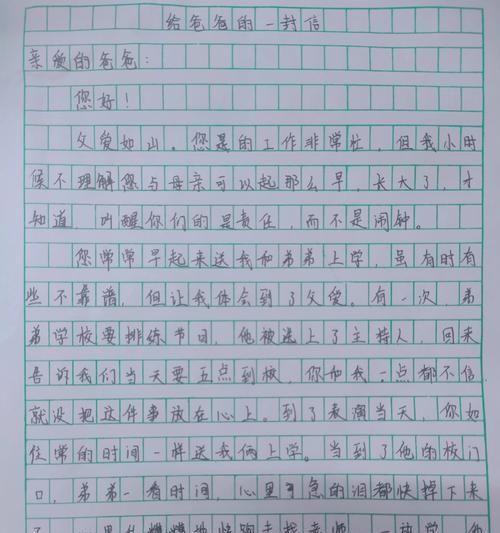 给爸爸的一封信
亲爱的爸爸：
您好！
父爱如山。您是的工作非常忙，但我小时
候不理解您与母亲可以起那么早，长大了，才
知道，叫醒你们的是责任，而不是闹钟。
您常常早起来送我和弟弟上学，虽有时有
些不靠谱，但让我体会到了父爱。有一次，弟
弟学校要排练节目，他被选上了主持人，回来
告诉我们当天要五点到校，你和我一点都不信
就没把这件事放在心上。到了表演当天，你如
往常的时间一样送我俩上学。当到了他的校门
口，弟弟一看时间，心里可急的泪都快掉下来
了